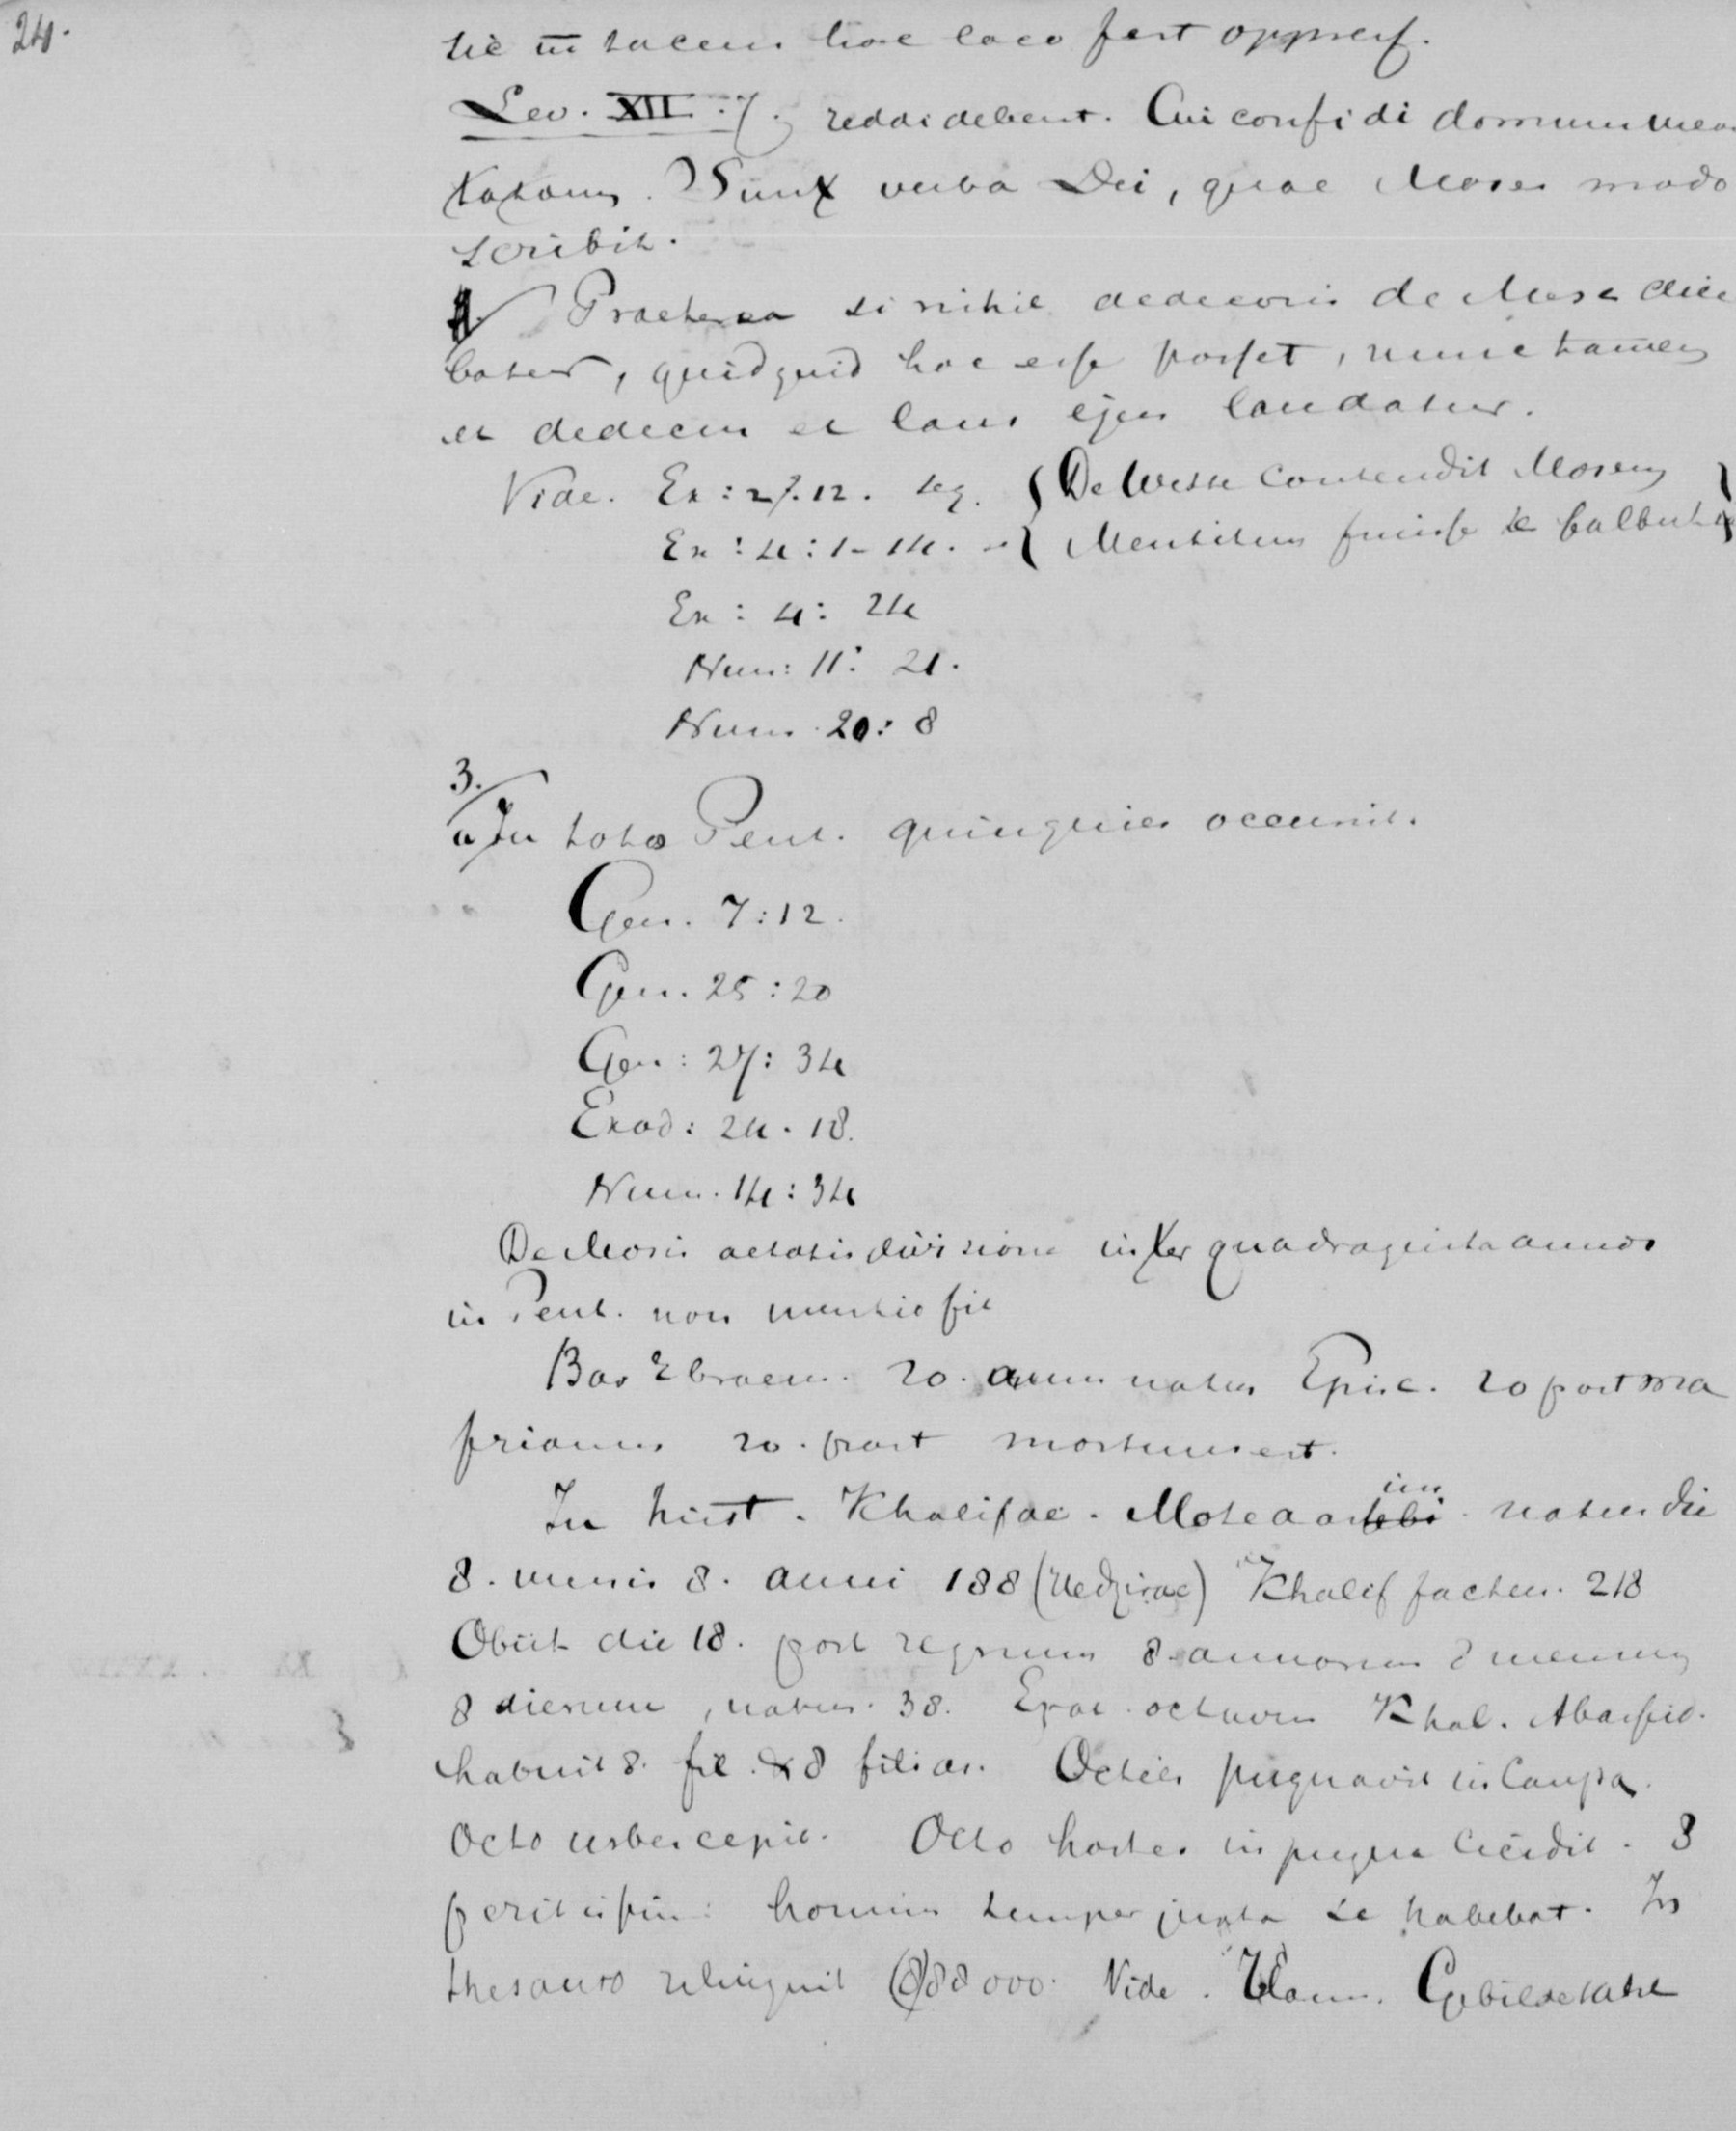 24.
sic in tacens hoc loco fert oppress.
Lev. XII. 7. reddi debent. Cui confidi domum mea
totam. Sunt verba Dei, quae Moses modo
scribit.
Praeterea si nihil dedecoris de Mose dice
batur, quidquid hoc esse posset, nunc tamen
et dedecus et laus ejus laudatur.
Vide. Ex: 27.12. seq. { De Wette contendit Mosen }
Ex: 4: 1-14. { Mentitum fuisse se balbut }
Ex: 4: 24
Num: 11: 21.
Num. 20: 8
3.
a In toto Pent. quinquies occurrit.
Gen. 7:12.
Gen. 25:20
Gen: 27: 34
Exod: 24. 18.
Num. 14: 34
De Mosis aetatis divisione in ter quadraginta annos
in Pent. non mentio fit
Bar Ebraeus. 20. annus natus Episc. 20 post ma
frianus 20. post mortuus est.
In hist. Khalifae. Motea natus die
8. mensis 8. anni 188 (Hedzirae) Khalif factus. 218
Obiit die 18. post regnum 8. annorum 8 mensium
8 dierum, natus. 38. Erat octavus Khal. Abasid.
habuit 8. fil. & 8 filias. Octies pugnavit in Campo.
Octo urbes cepit. Octo hostes in pugna cecidit. 8
homines semper juxta se habebat. In
thesauro reliquit 888000. Vide.